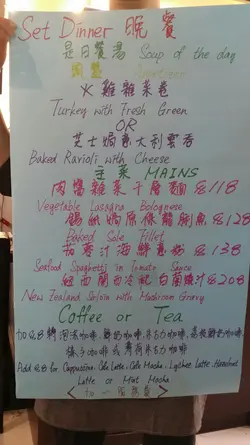 Set Dinner 晚餐
是日餐湯 Soup of the day
火雞雜菜卷
Turkey with Fresh Green
OR
芝士焗意大利雲吞
Baked Ravioli with Cheese
主菜 MAINS
肉醬雜菜千層麵 $118
Vegetable Lasagna Bolognese
錫紙焗原條龍脷魚 $128
Baked Sole Fillet
茄汁海鮮意粉 $138
Seafood Spaghetti in Tomato Sauce
紐西蘭西冷 白菌燒汁 $208
New Zealand Sirloin with Mushroom Gravy
Coffee or Tea
加 $8
Add $8 for Cappuccino, Cafe Latte, Cafe Mocha, Lychee Latte, Hazelnut
Latte or Mint Mocha
加一服務費